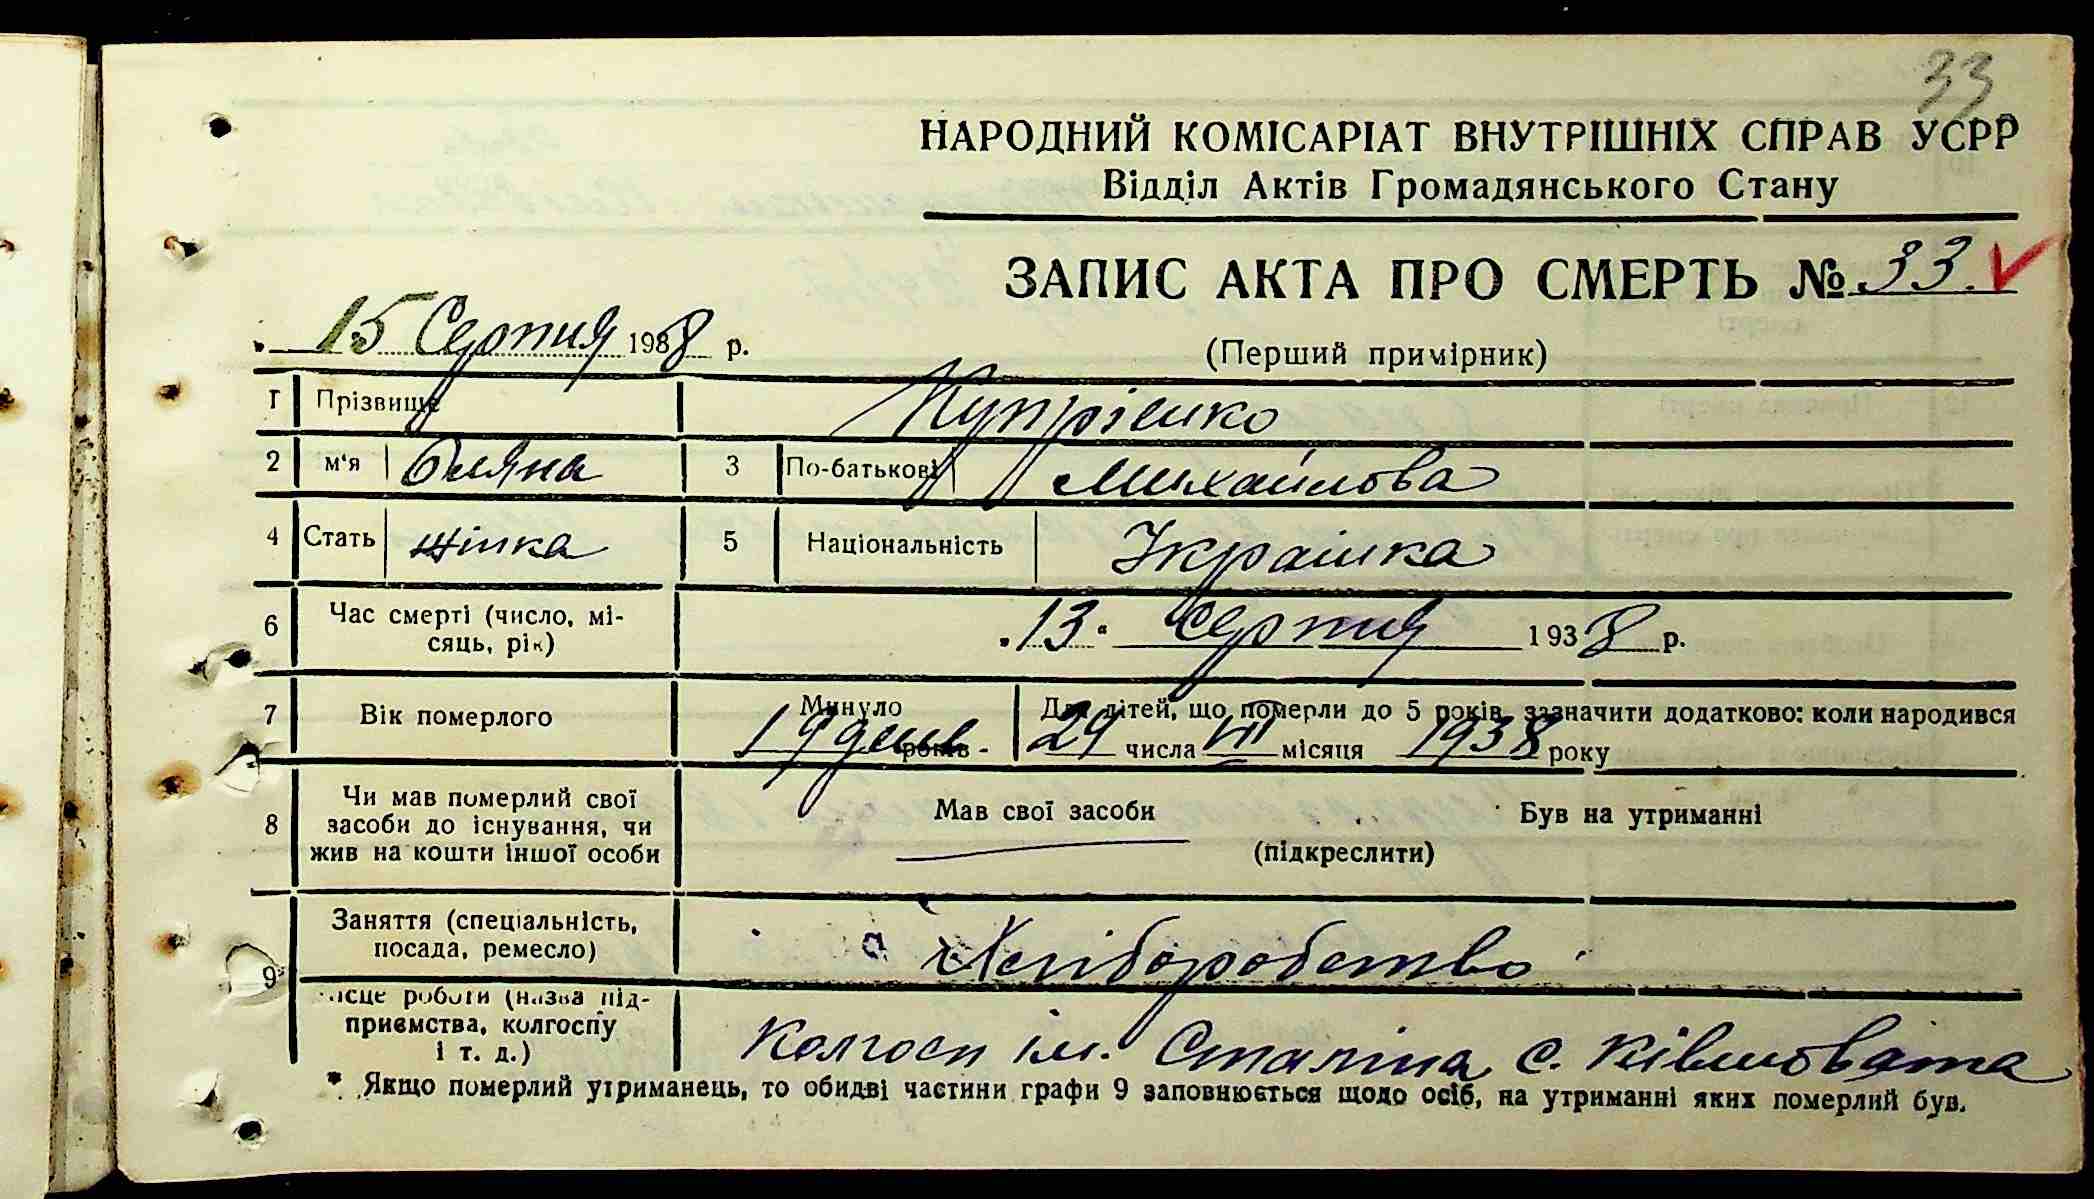 33
НАРОДНИЙ КОМІСАРІАТ ВНУТРІШНІХ СПРАВ УСРР
Відділ Актів Громадянського Стану
ЗАПИС АКТА ПРО СМЕРТЬ № 33.
15 Серпня 1938 р.
(Перший примірник)
1 Прізвище Купрієнко
2 м'я Оляна 3 По-батькові Михайлова
4 Стать жінка 5 Національність Українка
6 Час смерті (число, мі-
сяць, рік) "13" Серпня 1938 р.
7 Вік померлого Минуло 19 днів років - Для дітей, що померли до 5 років, зазначити додатково: коли народився
29 числа VII місяця 1938 року
8 Чи мав померлий свої
засоби до існування, чи
жив на кошти іншої особи
Мав свої засоби Був на утриманні
(підкреслити)
9* Заняття (спеціальність,
посада, ремесло) Хліборобство
ісце роботи (назва під-
приємства, колгоспу
і т. д.) Колгосп ім. Сталіна с. Ківшовата
* Якщо померлий утриманець, то обидві частини графи 9 заповнюється щодо осіб, на утриманні яких померлий був.